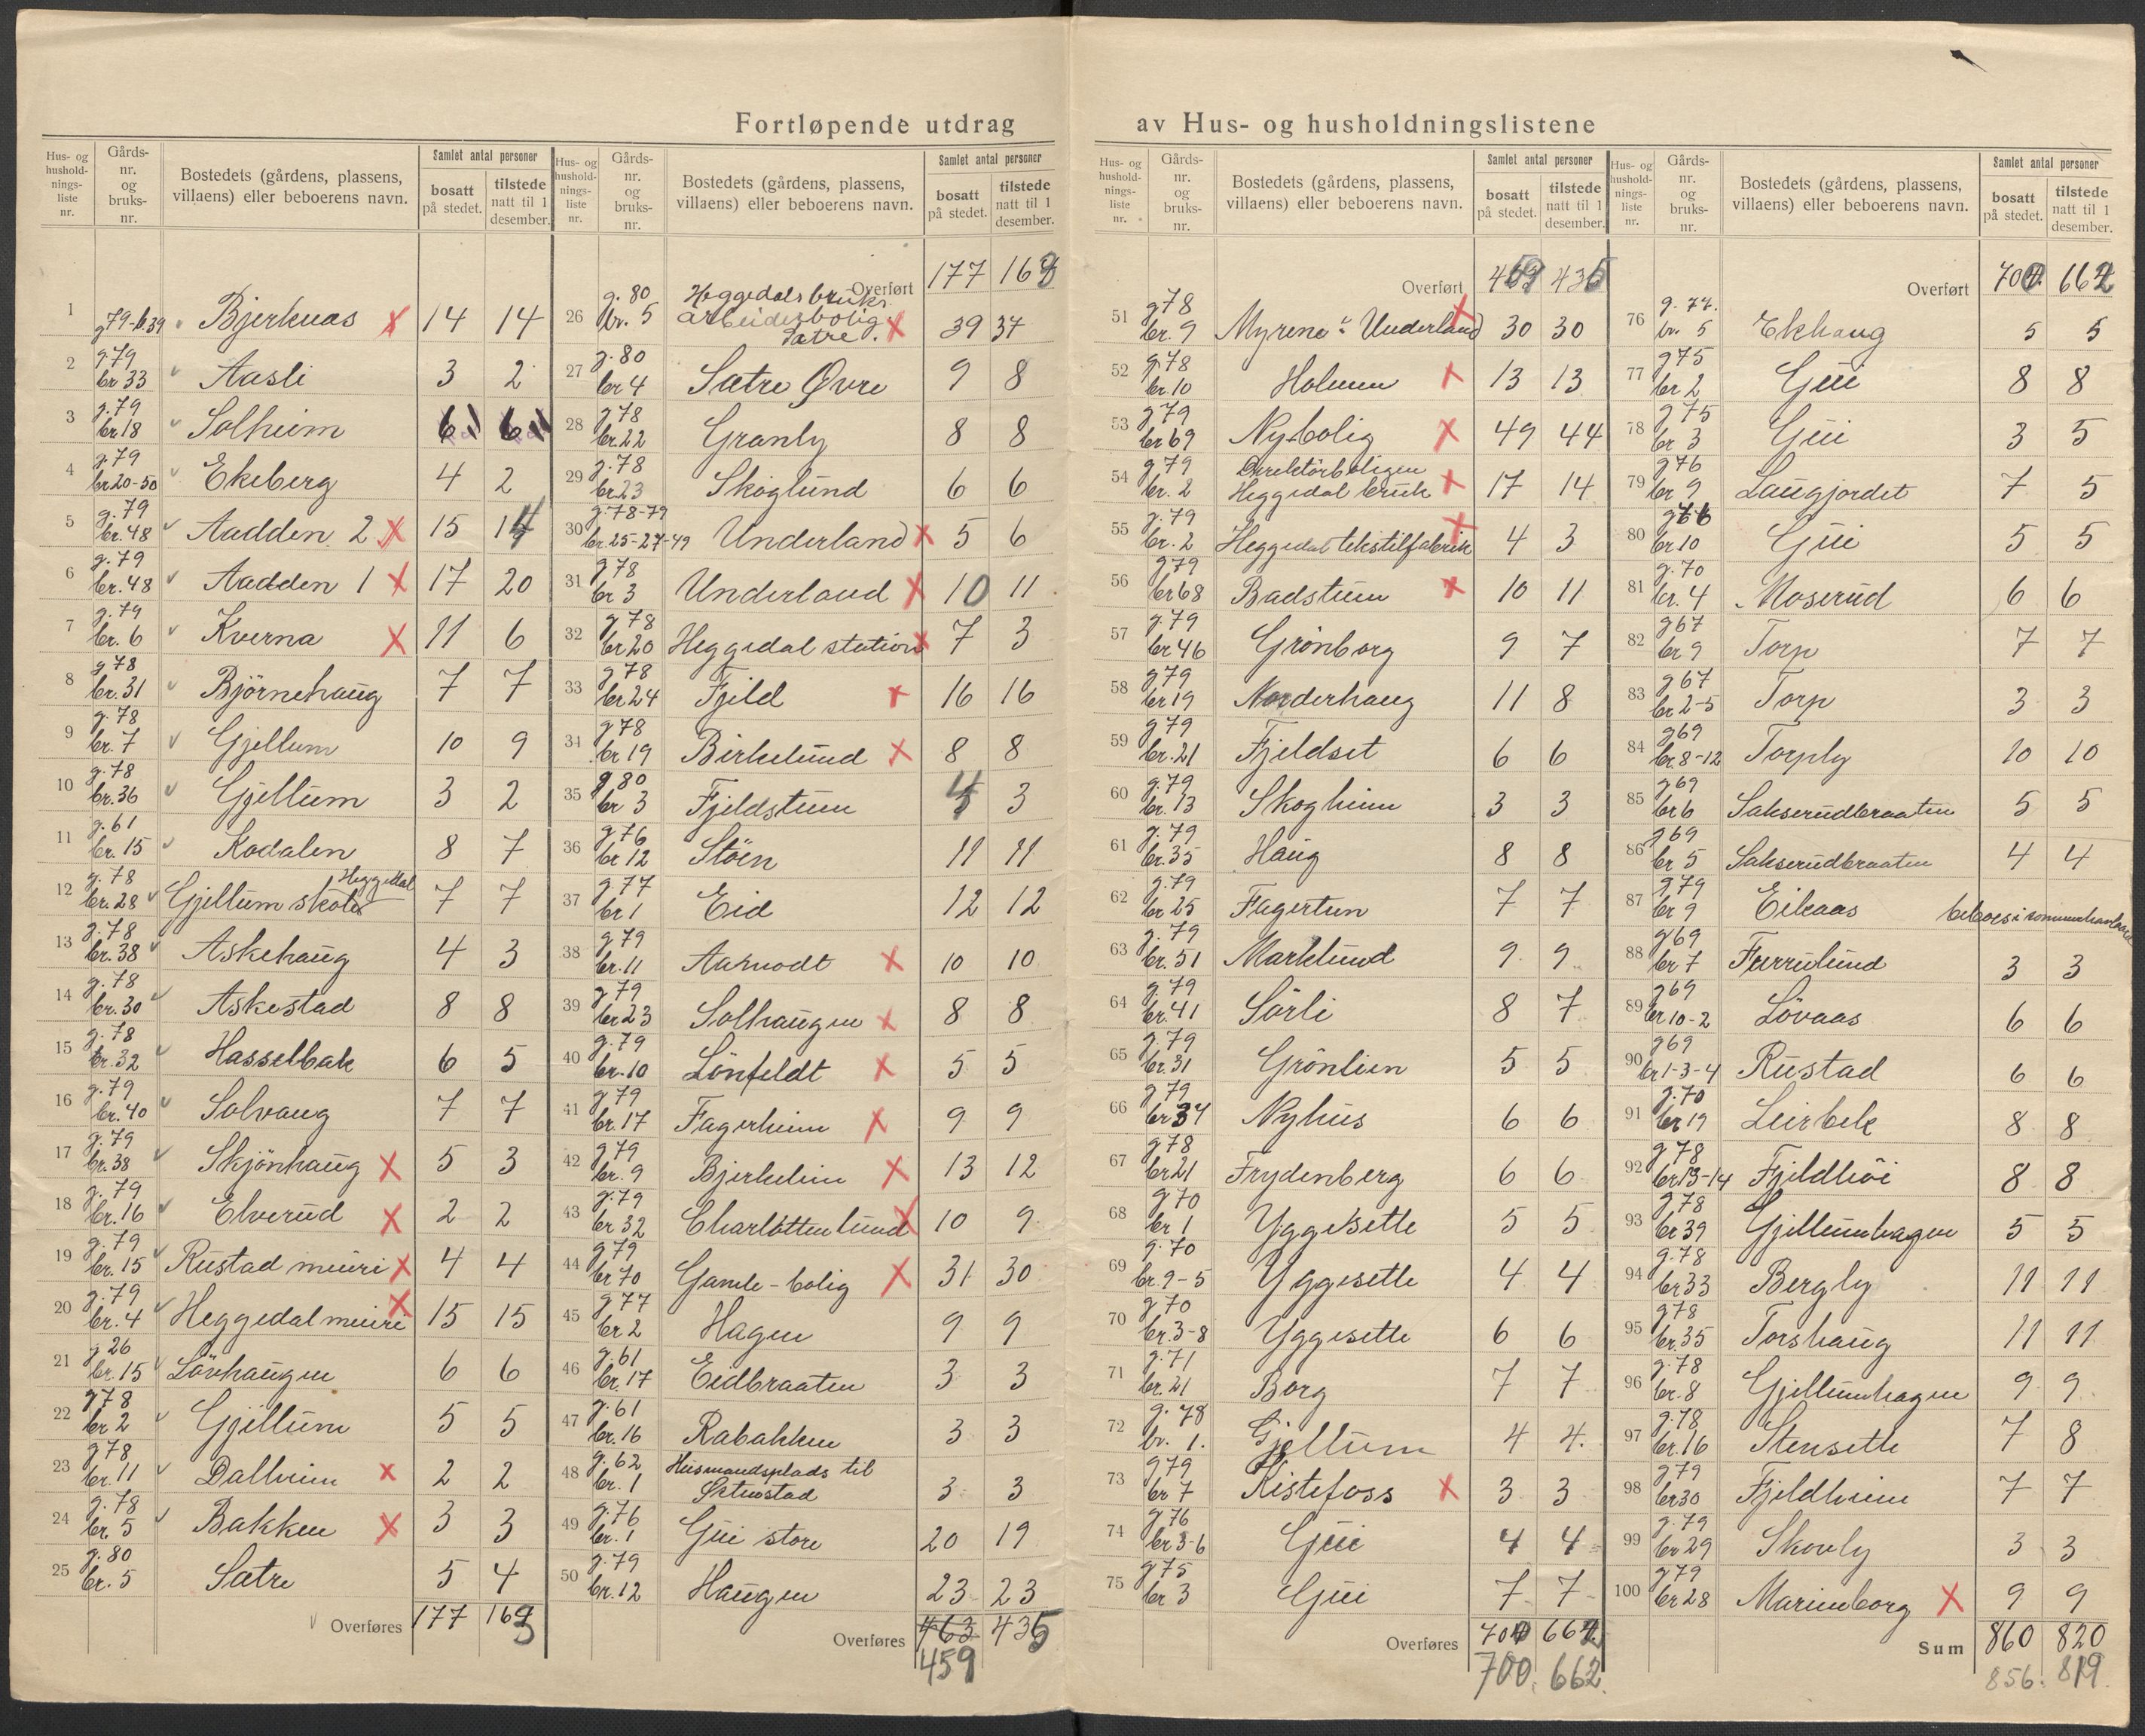 Fortløpende utdrag av Hus- og husholdningslistene
Hus- og hushold-nings-liste nr. Gårds-nr. og bruks-nr. Bostedets (gårdens, plassens, villaens) eller beboerens navn. Samlet antal personer bosatt på stedet. tilstede natt til 1 desember.
1 g79-b.39 Bjerknas x 14 14
2 g.79 br 33 Aasli 3 2
3 g.79 br 18 Solheim 6 6
4 g.79 br 20-50 Ekeberg 4 2
5 g.79 br.48 Aadden 2 x 15 14
6 g.79 br.48 Aadden 1 x 17 20
7 g.79 br.6 Kverna x 11 6
8 g78 br.31 Björnehaug 7 7
9 g.78 br.7 Gjellum 10 9
10 g.78 br.36 Gjellum 3 2
11 g.61 br.15 Kodalen 8 7
12 g.78 br.28 Gjellum skole Heggedal 7 7
13 g.78 br.38 Askehaug 4 3
14 g.78 br.30 Askestad 8 8
15 g.78 br.32 Hasselbak 6 5
16 g.79 br.40 Solvang 7 7
17 g.79 br.38 Skjönhaug x 5 3
18 g.79 br.16 Elverud x 2 2
19 g.79 br.15 Rustad meieri x 4 4
20 g.79 br.4 Heggedal meieri x 15 15
21 g 26 br.15 Lövhaugen 6 6
22 g78 br 2 Gjellum 5 5
23 g78 br.11 Dalheim x 2 2
24 g.78 br.5 Bakken x 3 3
25 g.80 br.5 Sætre 5 4
Overføres 177 163
Hus- og hushold-nings-liste nr. Gårds-nr. og bruks-nr. Bostedets (gårdens, plassens, villaens) eller beboerens navn. Samlet antal personer bosatt på stedet. tilstede natt til 1 desember.
Overført 177 168
26 g.80 br.5 Heggedals bruks arbeiderbolig. Sætre. x 39 37
27 g.80 br 4 Sætre Øvre 9 8
28 g78 br.22 Granly 8 8
29 g.78 br.23 Skoglund 6 6
30 g.78-79 br.25-27-49 Underland x 5 6
31 g78 br 3 Underland x 10 11
32 g78 br20 Heggedal station x 7 3
33 g78 br24 Fjeld x 16 16
34 g78 br 19 Birkelund x 8 8
35 g80 br 3 Fjeldstuen 4 3
36 g76 br 12 Stöen 11 11
37 g.77 br 1 Eid 12 12
38 g79 br.11 Aamodt x 10 10
39 g79 br23 Solhaugen x 8 8
40 g.79 br.10 Lönfeldt x 5 5
41 g79 br.17 Fagerheim x 9 9
42 g79 br.9 Bjerkelien x 13 12
43 g.79 br 32 Charlottenlund x 10 9
44 g79 br 70 Gamle-bolig x 31 30
45 g77 br 2 Hagen 9 9
46 g.61 br.17 Eidbraaten 3 3
47 g.61 br.16 Rabakken 3 3
48 g.62 br.1 Husmandsplads til 3 3
49 g.76 br.1 Gui store 20 19
50 g.79 br.12 Haugen 23 23
Overføres 463 435
459
Hus- og hushold-nings-liste nr. Gårds-nr. og bruks-nr. Bostedets (gårdens, plassens, villaens) eller beboerens navn. Samlet antal personer bosatt på stedet. tilstede natt til 1 desember.
Overført 459 435
51 g78 br.9 Myrene u. Underland x 30 30
52 g78 br 10 Holmen x 13 13
53 g79 br 69 Ny-bolig x 49 44
54 g79 br.2 Direktörboligen Heggedal bruk x 17 14
55 g.79 br.2 Heggedal tekstilfabrik x 4 3
56 g79 br68 Badstuen x 10 11
57 g79 br 46 Grönborg 9 7
58 g79 br19 Norderhaug 11 8
59 g79 br.21 Fjeldset 6 6
60 g.79 br.13 Skogheim 3 3
61 g.79 br.35 Haug 8 8
62 g.79 br 25 Fagertun 7 7
63 g.79 br.51 Marklund 9 9
64 g79 br.41 Sörli 8 7
65 g.79 br.31 Grönlien 5 5
66 g79 br34 Nyhus 6 6
67 g78 br21 Frydenberg 6 6
68 g70 br 1 Yggesette 5 5
69 g.70 br.9-5 Yggesette 4 4
70 g70 br.3-8 Yggesette 6 6
71 g.71 br.21 Borg 7 7
72 g.78 br.1. Gjellum 4 4.
73 g79 br 7 Kistefoss x 3 3
74 g.76 br3-6 Gui 4 4
75 g75 br 3 Gui 7 7
Overføres 704 664
700. 662.
Hus- og hushold-nings-liste nr. Gårds-nr. og bruks-nr. Bostedets (gårdens, plassens, villaens) eller beboerens navn. Samlet antal personer bosatt på stedet. tilstede natt til 1 desember.
Overført 700 662
76 g.77. br.5 Ekhaug 5 5
77 g75 br 2 Gui 8 8
78 g75 br 3 Gui 3 5
79 g76 br 9 Laugjordet 7 5
80 g76 br10 Gui 5 5
81 g.70 br.4 Moserud 6 6
82 g67 br 9 Torp 7 7
83 g67 br 2-5 Torp 3 3
84 g69 br.8-12 Torply 10 10
85 g69 br6 Sakserudbraaten 5 5
86 g69 br 5 Sakserudbraaten 4 4
87 g.79 br 9 Eikaas beboes i sommerhalvaaret
88 g69 br 7 Furrulund 3 3
89 g69 br 10-2 Lövaas 6 6
90 g69 br1-3-4 Rustad 6 6
91 g.70 br19 Leirbek 8 8
92 g78 br13-14 Fjeldhöi 8 8
93 g78 br39 Gjellumhagen 5 5
94 g.78 br33 Bergly 11 11
95 g78 br.35 Torshaug 11 11
96 g.78 br.8 Gjellumhagen 9 9
97 g.78 br.16 Stensette 7 8
98 g79 br30 Fjeldheim 7 7
99 g.79 br 29 Skovly 3 3
100 g79 br28 Marienborg x 9 9
Sum 860 820
856. 819.